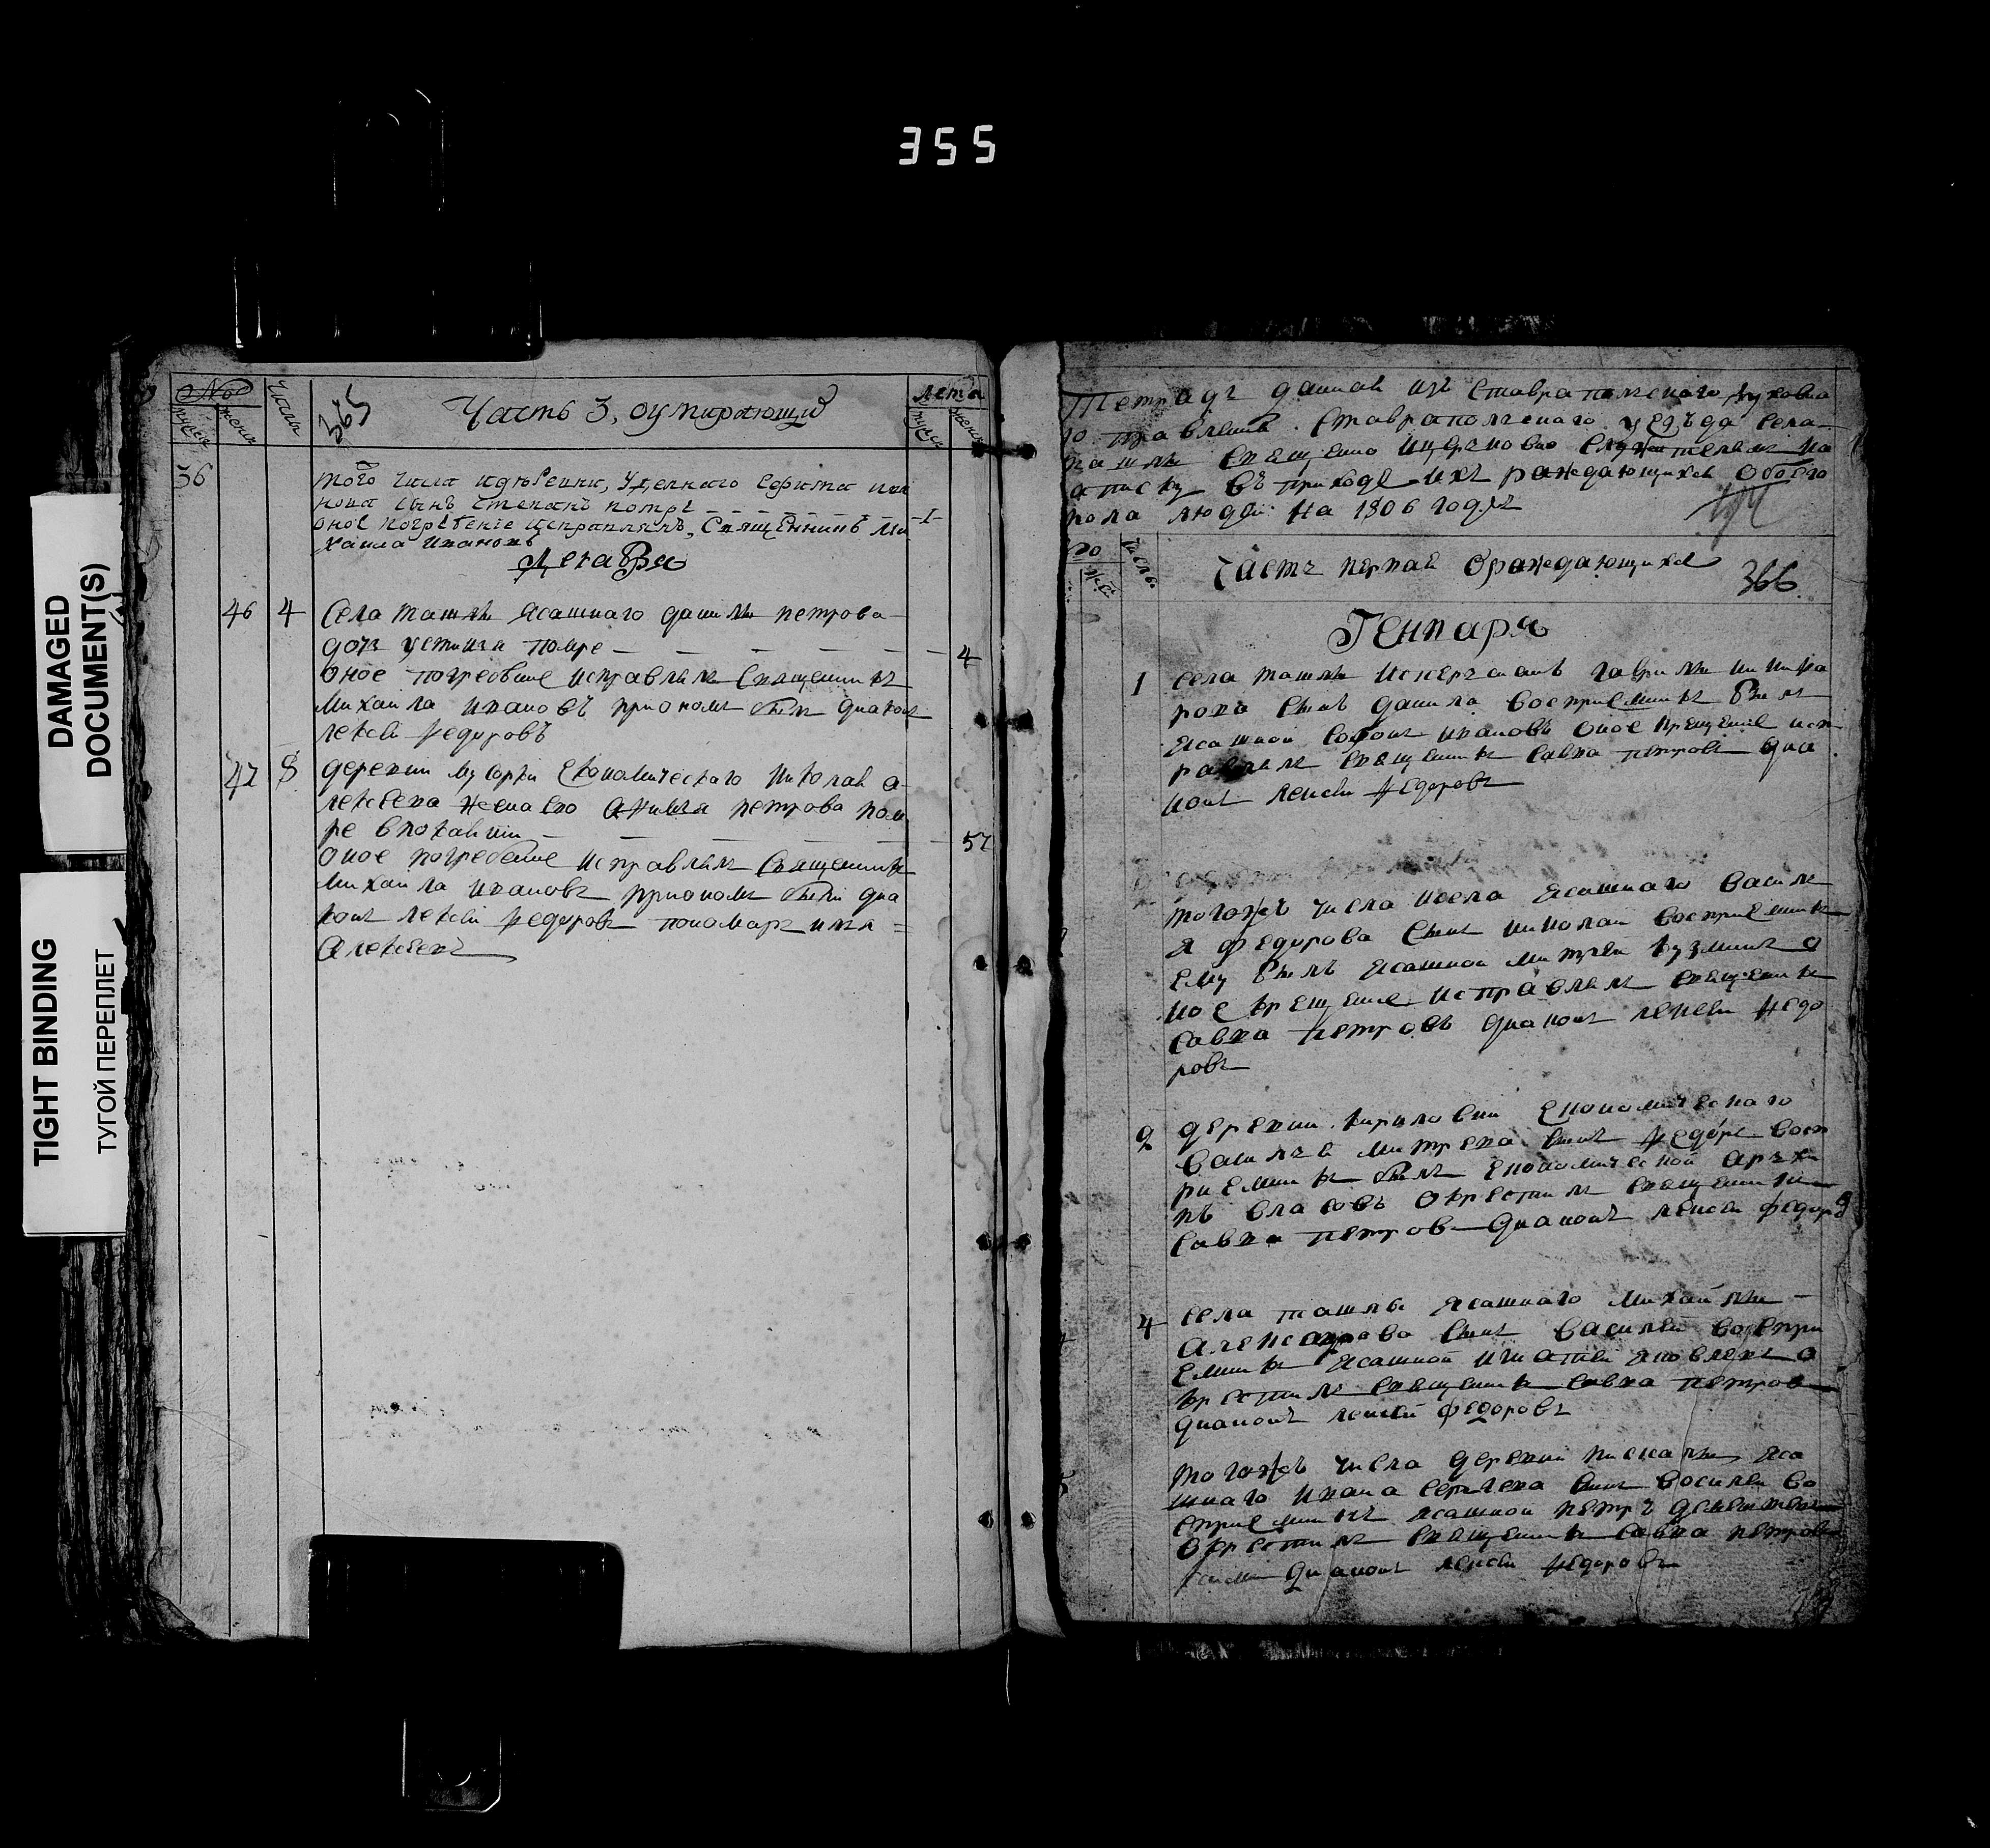 355
DAMAGED
DOCUMENT(S)
TIGHT BINDING
ТУГОЙ ПЕРЕПЛЕТ
365
Часть 3, оумирающия
Лета
36
того числа
сынъ Степанъ помре
1
оное погребение исправлялъ, Священникъ Ми
хаила Ивановъ
Декабря
46 4 Села Ташлы Ясашнаго Данилы Петрова
дочь Устинья помре 4
оное погребение исправлялъ Священникъ
Михаила Ивановъ при ономъ былъ диаконъ
лексей Федоровъ
47 8 деревни Мусорки Економическаго Николая А
лексеева жена ево Петрова пом
ре 57
оное погребение исправлялъ Священникъ
Михаила Ивановъ при ономъ были диа
конъ лексей Федоровъ пономарь Илья
Алексеевъ
Тетрадь данная изъ Ставрапольскаго духовна
го правления Ставрапольскаго уезъда села
священно церковно служителямъ на
записку въ приходе ихъ раждающихся обоего
пола людей на 1806 годъ
число
Часть первая о раждающихся
366
Генваря
1 села Ташлы Гаврилы Ники
рова сынъ Данила восприемникъ былъ
Ясашной Софонъ Ивановъ оное крещение исп
равлялъ священникъ Савва Петровъ диа
конъ лексей Федоровъ
тогожъ числа и села Ясашнаго Василь
я Федорова сынъ Николай восприемникъ
ему былъ Ясашной Митрей Кузминъ о
ное крещение исправлялъ священникъ
Савва Петровъ диаконъ лексей Федо
ровъ
2 деревни Кириловки Економическаго
Василья Митрева сынъ Федоръ восп
риемникъ былъ Економической Архи
пъ Власовъ окрестилъ священникъ
Савва Петровъ диаконъ лексей Федоровъ
4 села Ташлы Ясашнаго Михайлы
Александрова сынъ Василей воспри
емникъ Ясашной Игнатей Яковлевъ о
крестилъ священникъ Савва Петровъ
диаконъ лексей Федоровъ
тогожъ числа деревни Пискалы Яса
шнаго Ивана Сергеева сынъ Василей во
сприемникъ Ясашной Петръ
окрестилъ священникъ Савва Петровъ
диаконъ лексей Федоровъ